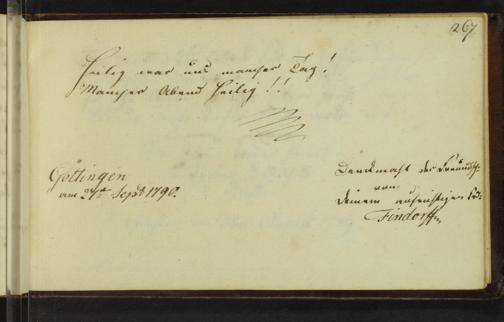 267
Heilig war uns mancher Tag!
Mancher Abend heilig!!
Göttingen
am 27ᵗ Sept 1790.
Denkmahl der Freundsch.
von
Deinem aufrichtigen
Findorff